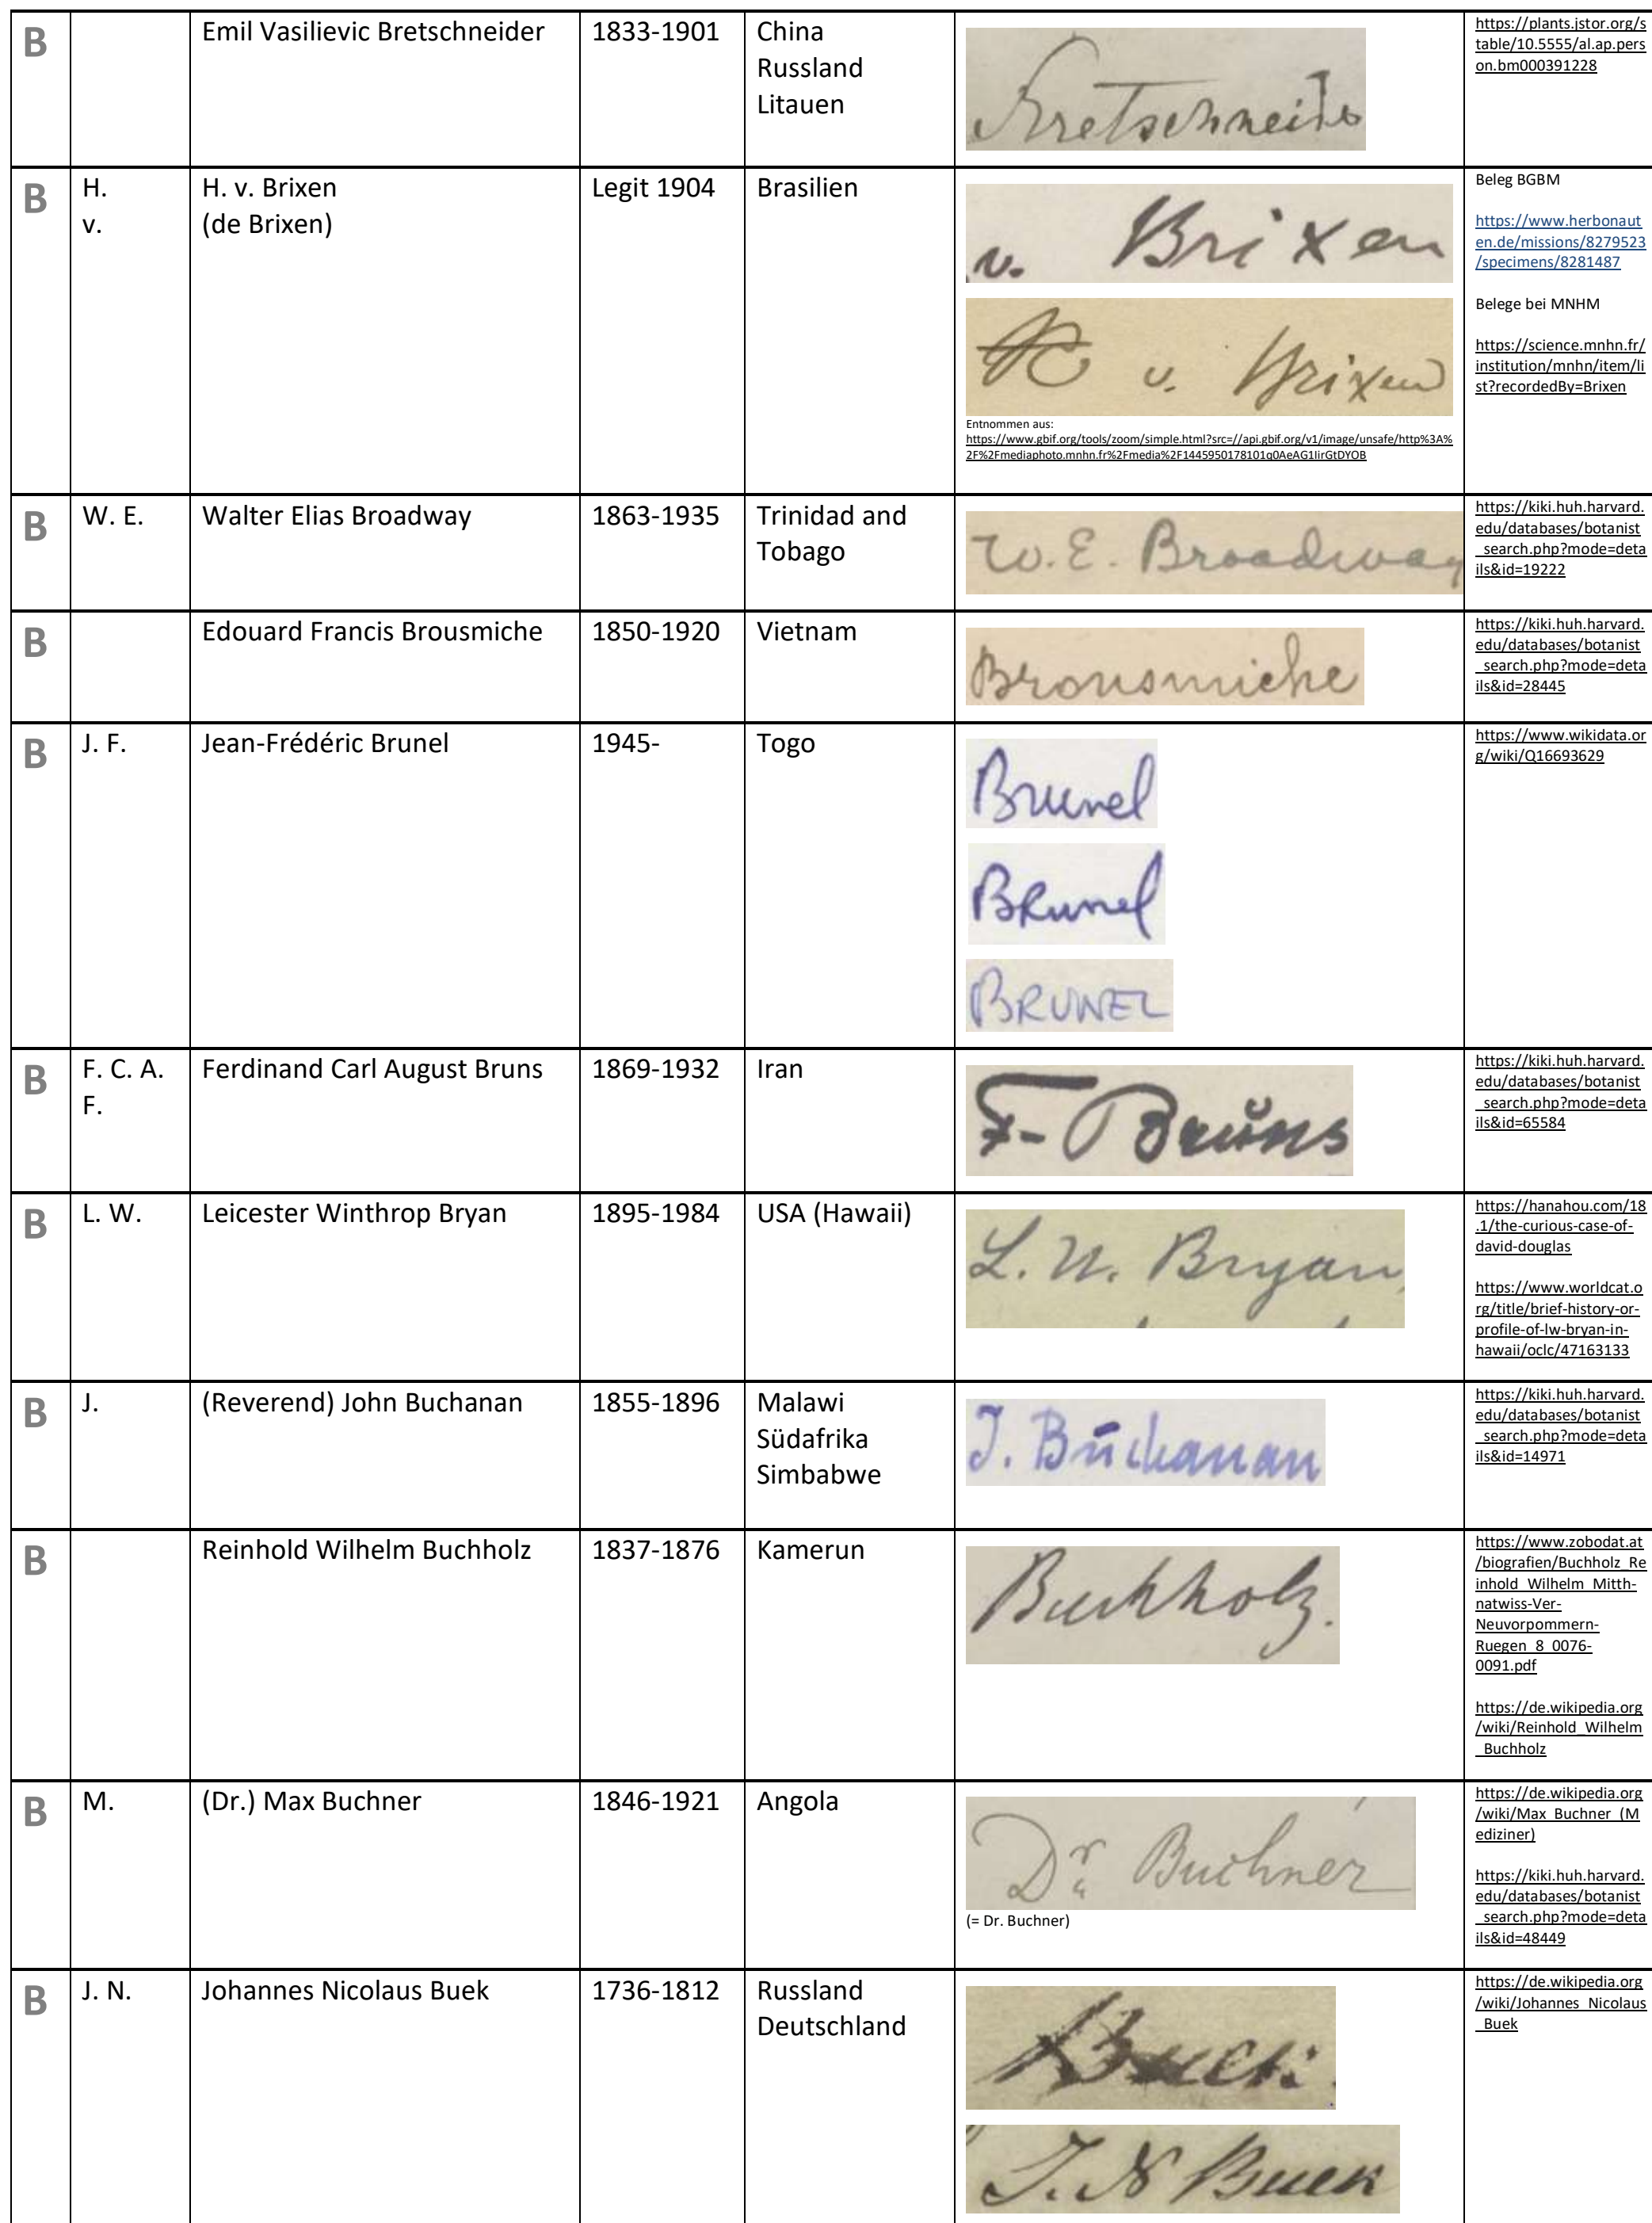 B
Emil Vasilievic Bretschneider
1833-1901
China
Russland
Litauen
Bretschneider
https://plants.jstor.org/s
table/10.5555/al.ap.pers
on.bm000391228
B
H.
v.
H. v. Brixen
(de Brixen)
Legit 1904
Brasilien
v. Brixen
H v. Brixen
Entnommen aus:
https://www.gbif.org/tools/zoom/simple.html?src=//api.gbif.org/v1/image/unsafe/http%3A%
2F%2Fmediaphoto.mnhn.fr%2Fmedia%2F1445950178101q0AeAG1IirGtDYOB
Beleg BGBM
https://www.herbonaut
en.de/missions/8279523
/specimens/8281487
Belege bei MNHM
https://science.mnhn.fr/
institution/mnhn/item/li
st?recordedBy=Brixen
B
W. E.
Walter Elias Broadway
1863-1935
Trinidad and
Tobago
W. E. Broadway
https://kiki.huh.harvard.
edu/databases/botanist
_search.php?mode=deta
ils&id=19222
B
Edouard Francis Brousmiche
1850-1920
Vietnam
Brousmiche
https://kiki.huh.harvard.
edu/databases/botanist
_search.php?mode=deta
ils&id=28445
B
J. F.
Jean-Frédéric Brunel
1945-
Togo
Brunel
BRunel
BRUNEL
https://www.wikidata.or
g/wiki/Q16693629
B
F. C. A.
F.
Ferdinand Carl August Bruns
1869-1932
Iran
F. Brŭns
https://kiki.huh.harvard.
edu/databases/botanist
_search.php?mode=deta
ils&id=65584
B
L. W.
Leicester Winthrop Bryan
1895-1984
USA (Hawaii)
L. W. Bryan,
https://hanahou.com/18
.1/the-curious-case-of-
david-douglas
https://www.worldcat.o
rg/title/brief-history-or-
profile-of-lw-bryan-in-
hawaii/oclc/47163133
B
J.
(Reverend) John Buchanan
1855-1896
Malawi
Südafrika
Simbabwe
J. Buchanan
https://kiki.huh.harvard.
edu/databases/botanist
_search.php?mode=deta
ils&id=14971
B
Reinhold Wilhelm Buchholz
1837-1876
Kamerun
Buchholz.
https://www.zobodat.at
/biografien/Buchholz_Re
inhold_Wilhelm_Mitth-
natwiss-Ver-
Neuvorpommern-
Ruegen_8_0076-
0091.pdf
https://de.wikipedia.org
/wiki/Reinhold_Wilhelm
_Buchholz
B
M.
(Dr.) Max Buchner
1846-1921
Angola
Dr. Buchner
(= Dr. Buchner)
https://de.wikipedia.org
/wiki/Max_Buchner_(M
ediziner)
https://kiki.huh.harvard.
edu/databases/botanist
_search.php?mode=deta
ils&id=48449
B
J. N.
Johannes Nicolaus Buek
1736-1812
Russland
Deutschland
Buek.
J. N Buek
https://de.wikipedia.org
/wiki/Johannes_Nicolaus
_Buek